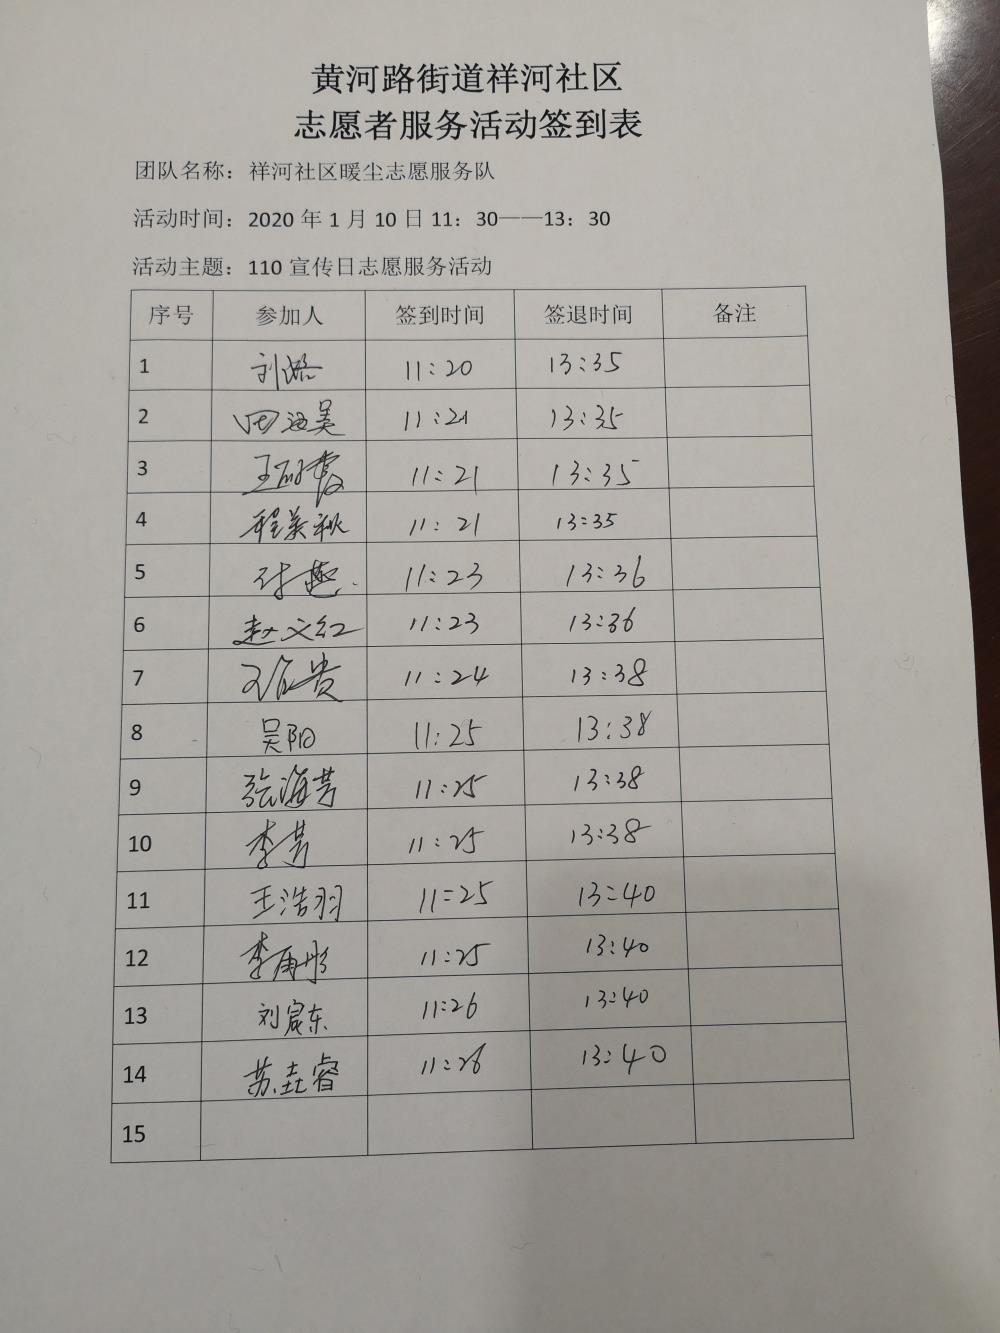 黄河路街道祥河社区
志愿者服务活动签到表
团队名称：祥河社区暖尘志愿服务队
活动时间：2020 年 1 月 10 日 11：30——13：30
活动主题：110 宣传日志愿服务活动
序号 参加人 签到时间 签退时间 备注
1 刘潞 11:20 13:35
2 11:21 13:35
3 11:21 13:35
4 程美秋 11:21 13:35
5 11:23 13:36
6 赵文红 11:23 13:36
7 11:24 13:38
8 吴阳 11:25 13:38
9 张海芳 11:25 13:38
10 李芳 11:25 13:38
11 王浩羽 11:25 13:40
12 李雨彤 11:25 13:40
13 刘宸东 11:26 13:40
14 苏垚睿 11:26 13:40
15